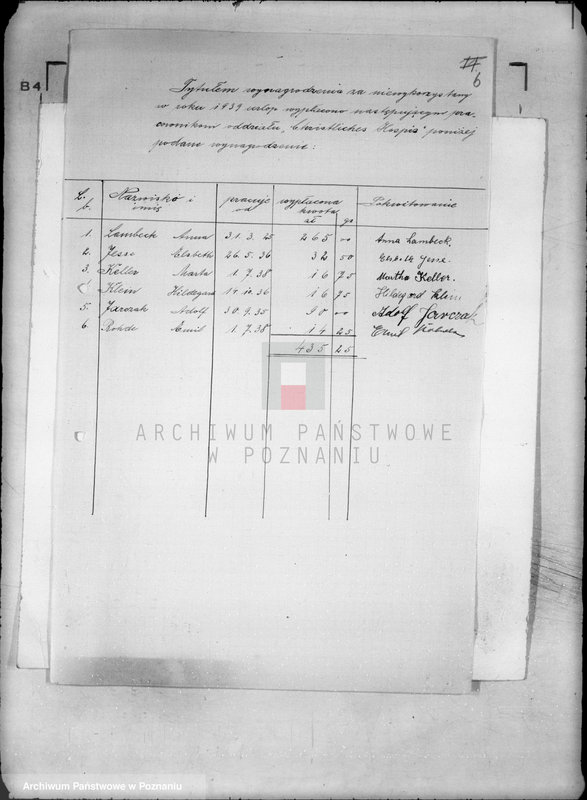 B4
6
Tytułem wynagrodzenia za niewykorzystany
w roku 1939 urlop wypłacono następującym pra-
cownikom oddziału „Christliches Hospis" poniżej
podane wynagrodzenie:
L. p. Nazwisko i imię pracuje od wypłacona kwota zł gr Pokwitowanie
1. Lambeck Anna 31. 3. 25 265 00 Anna Lambeck.
2. Jesse Elsbeth 26. 5. 36 32 50 Elsbeth Jesse.
3. Keller Marta 1. 7. 38 16 75 Martha Keller.
Klein Hildegard 14. 10. 36 16 75 Hildegard Klein
5. Jarczak Adolf 30. 9. 35 90 00 Adolf Jarczak
6. Rohde Emil 1. 7. 38 14 25 Emil
435 25
ARCHIWUM PAŃSTWOWE
W POZNANIU
Archiwum Państwowe w Poznaniu